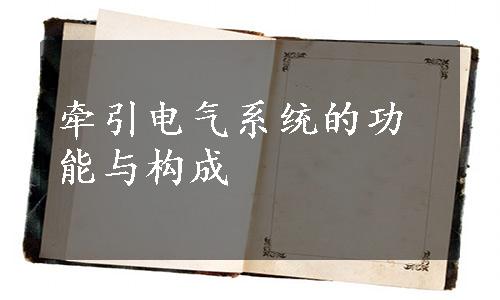 牵引电气系统的功
能与构成